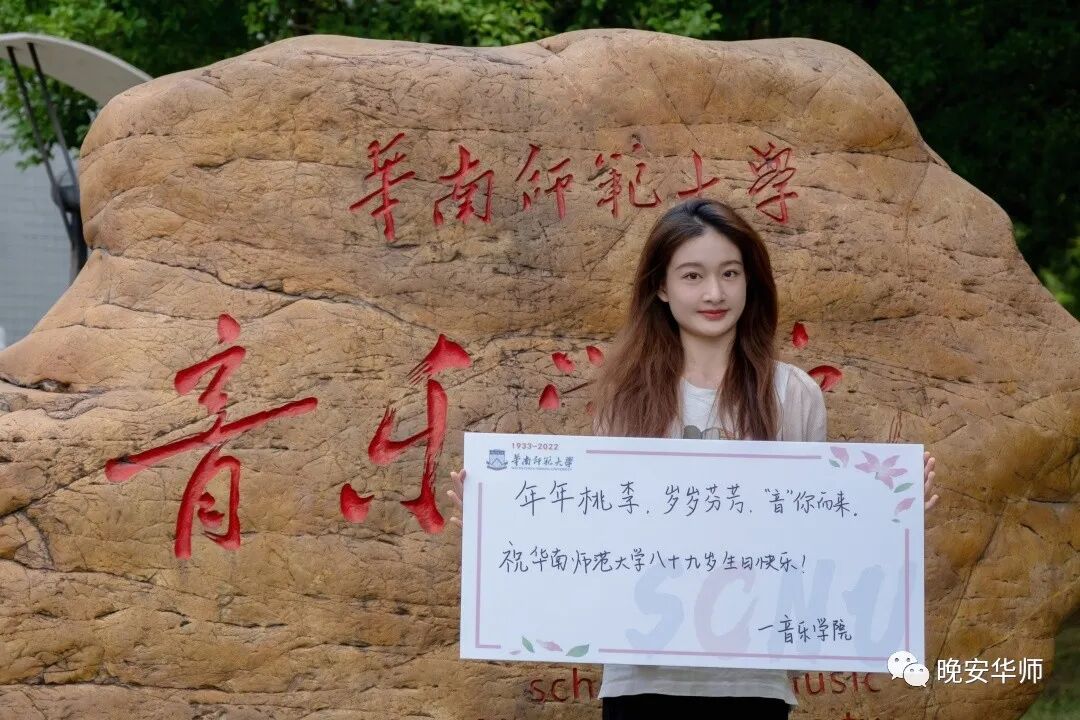 華南师範大學
音乐
1933-2022
華南师範大学
年年桃李，岁岁芬芳，“音”你而来。
祝华南师范大学八十九岁生日快乐！
SCNU
—音乐学院
晚安华师